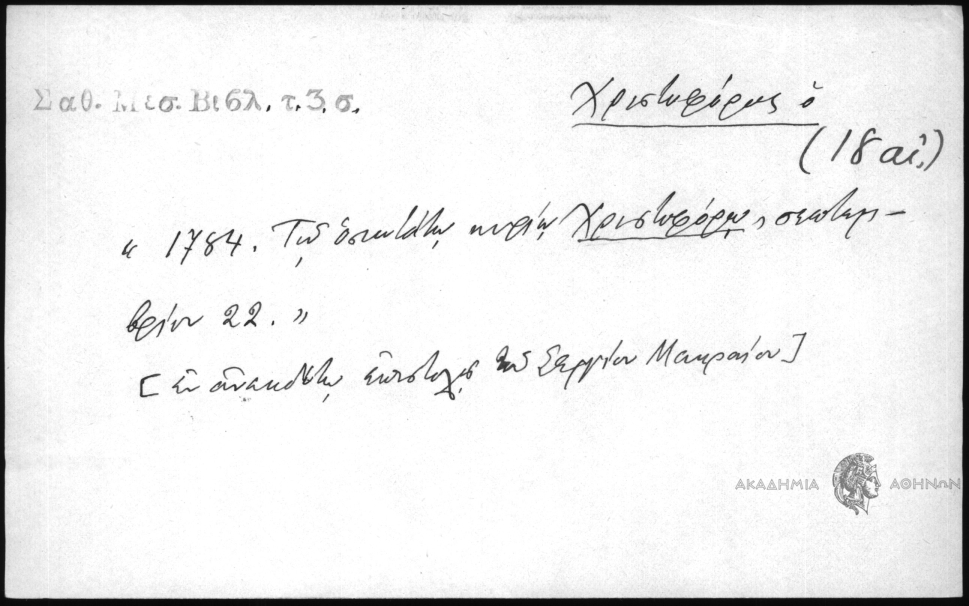 Σαθ. Μεσ. Βιβλ. τ. 3, σ.
Χριστοφόρος ὁ
(18 αἰ.)
« 1784. Τῷ ὁσιωτάτῳ κυρίῳ Χριστοφόρῳ, σεπτεμ-
βρίου 22. »
[ ἐν ἀνεκδότῳ ἐπιστολῇ τοῦ Σεργίου Μακραίου ]
ΑΚΑΔΗΜΙΑ ΑΘΗΝΩΝ